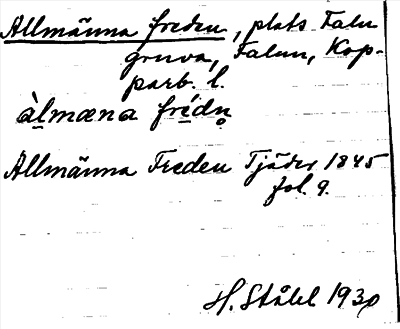 Allmänna freden, plats Falu
gruva, Falun, Kop-
parb. l.
àlmæna frídn̥
Allmänna Freden Tjäder 1845
fol. 9.
H. Ståhl 1930